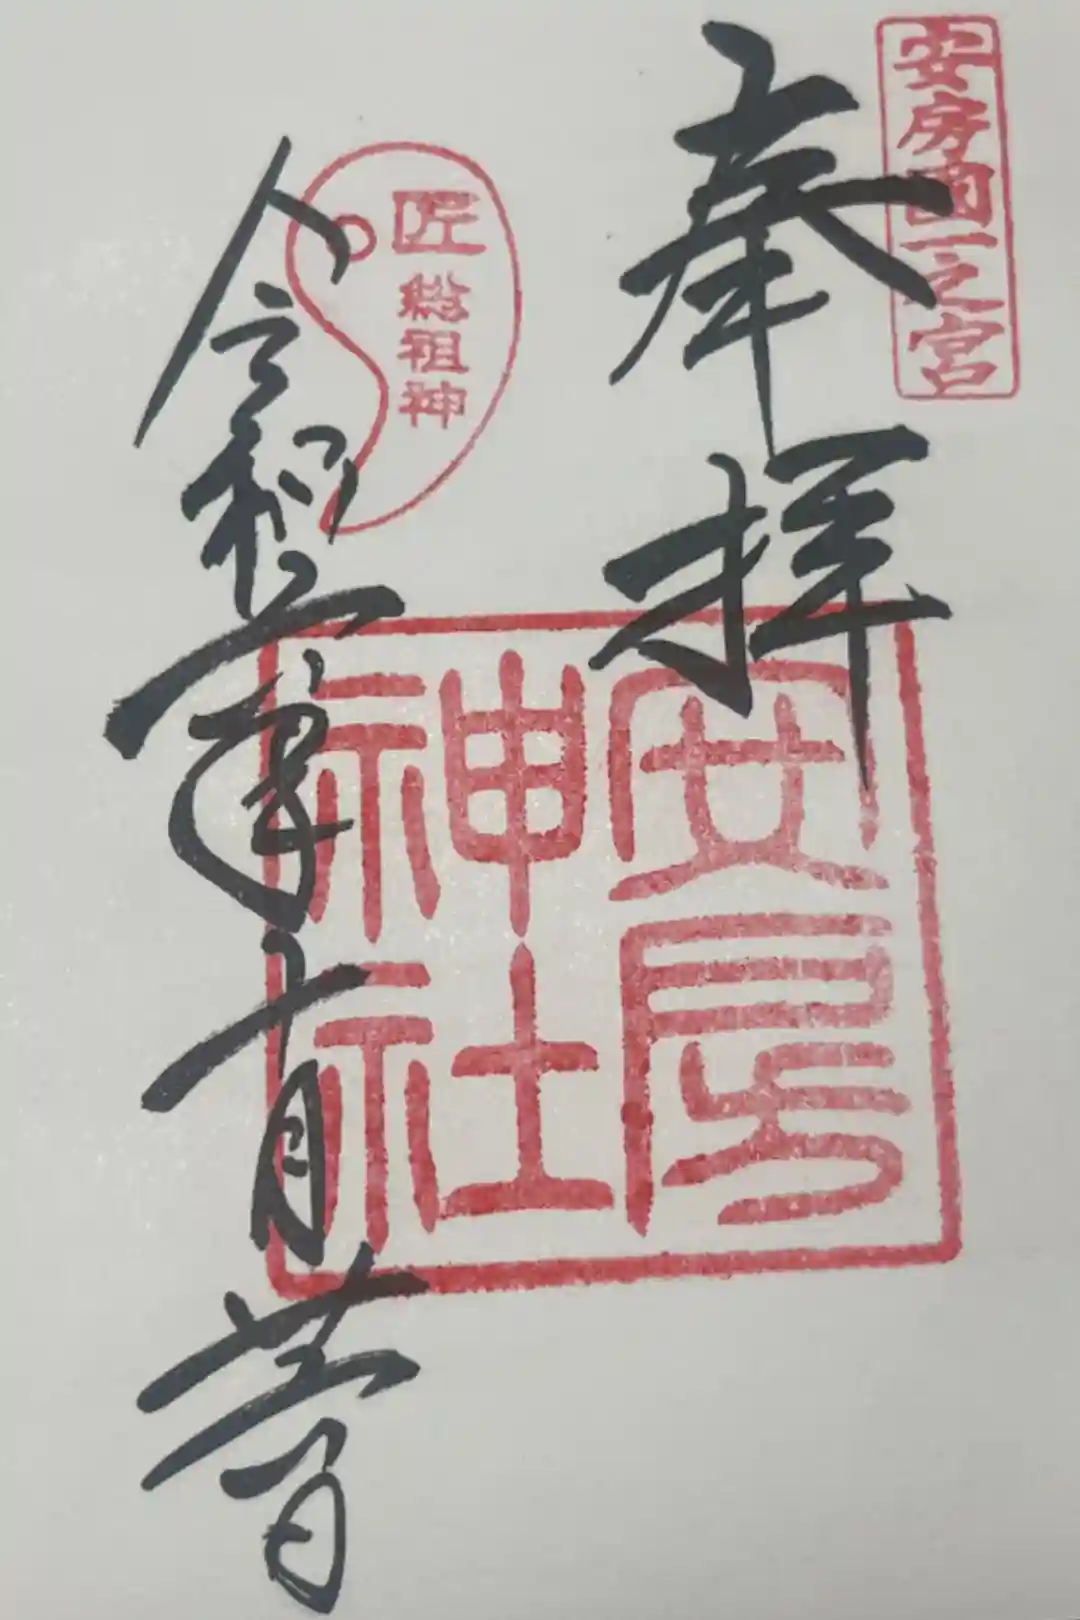 安房國一之宮
奉拝
安房
神社
匠総祖神
令和 年十月 日